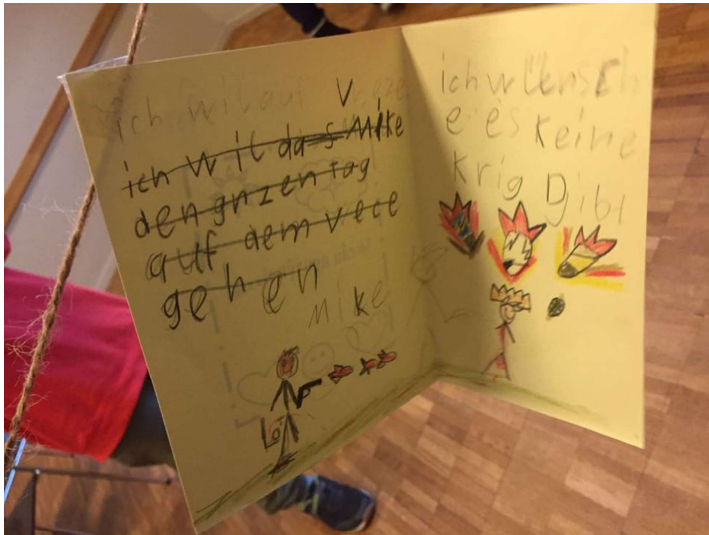 ich wil auf
ich wil das Mike
den gnzen tag
auf dem vece
gehen
Mike
ich wünsch
e es keine
krig gibt